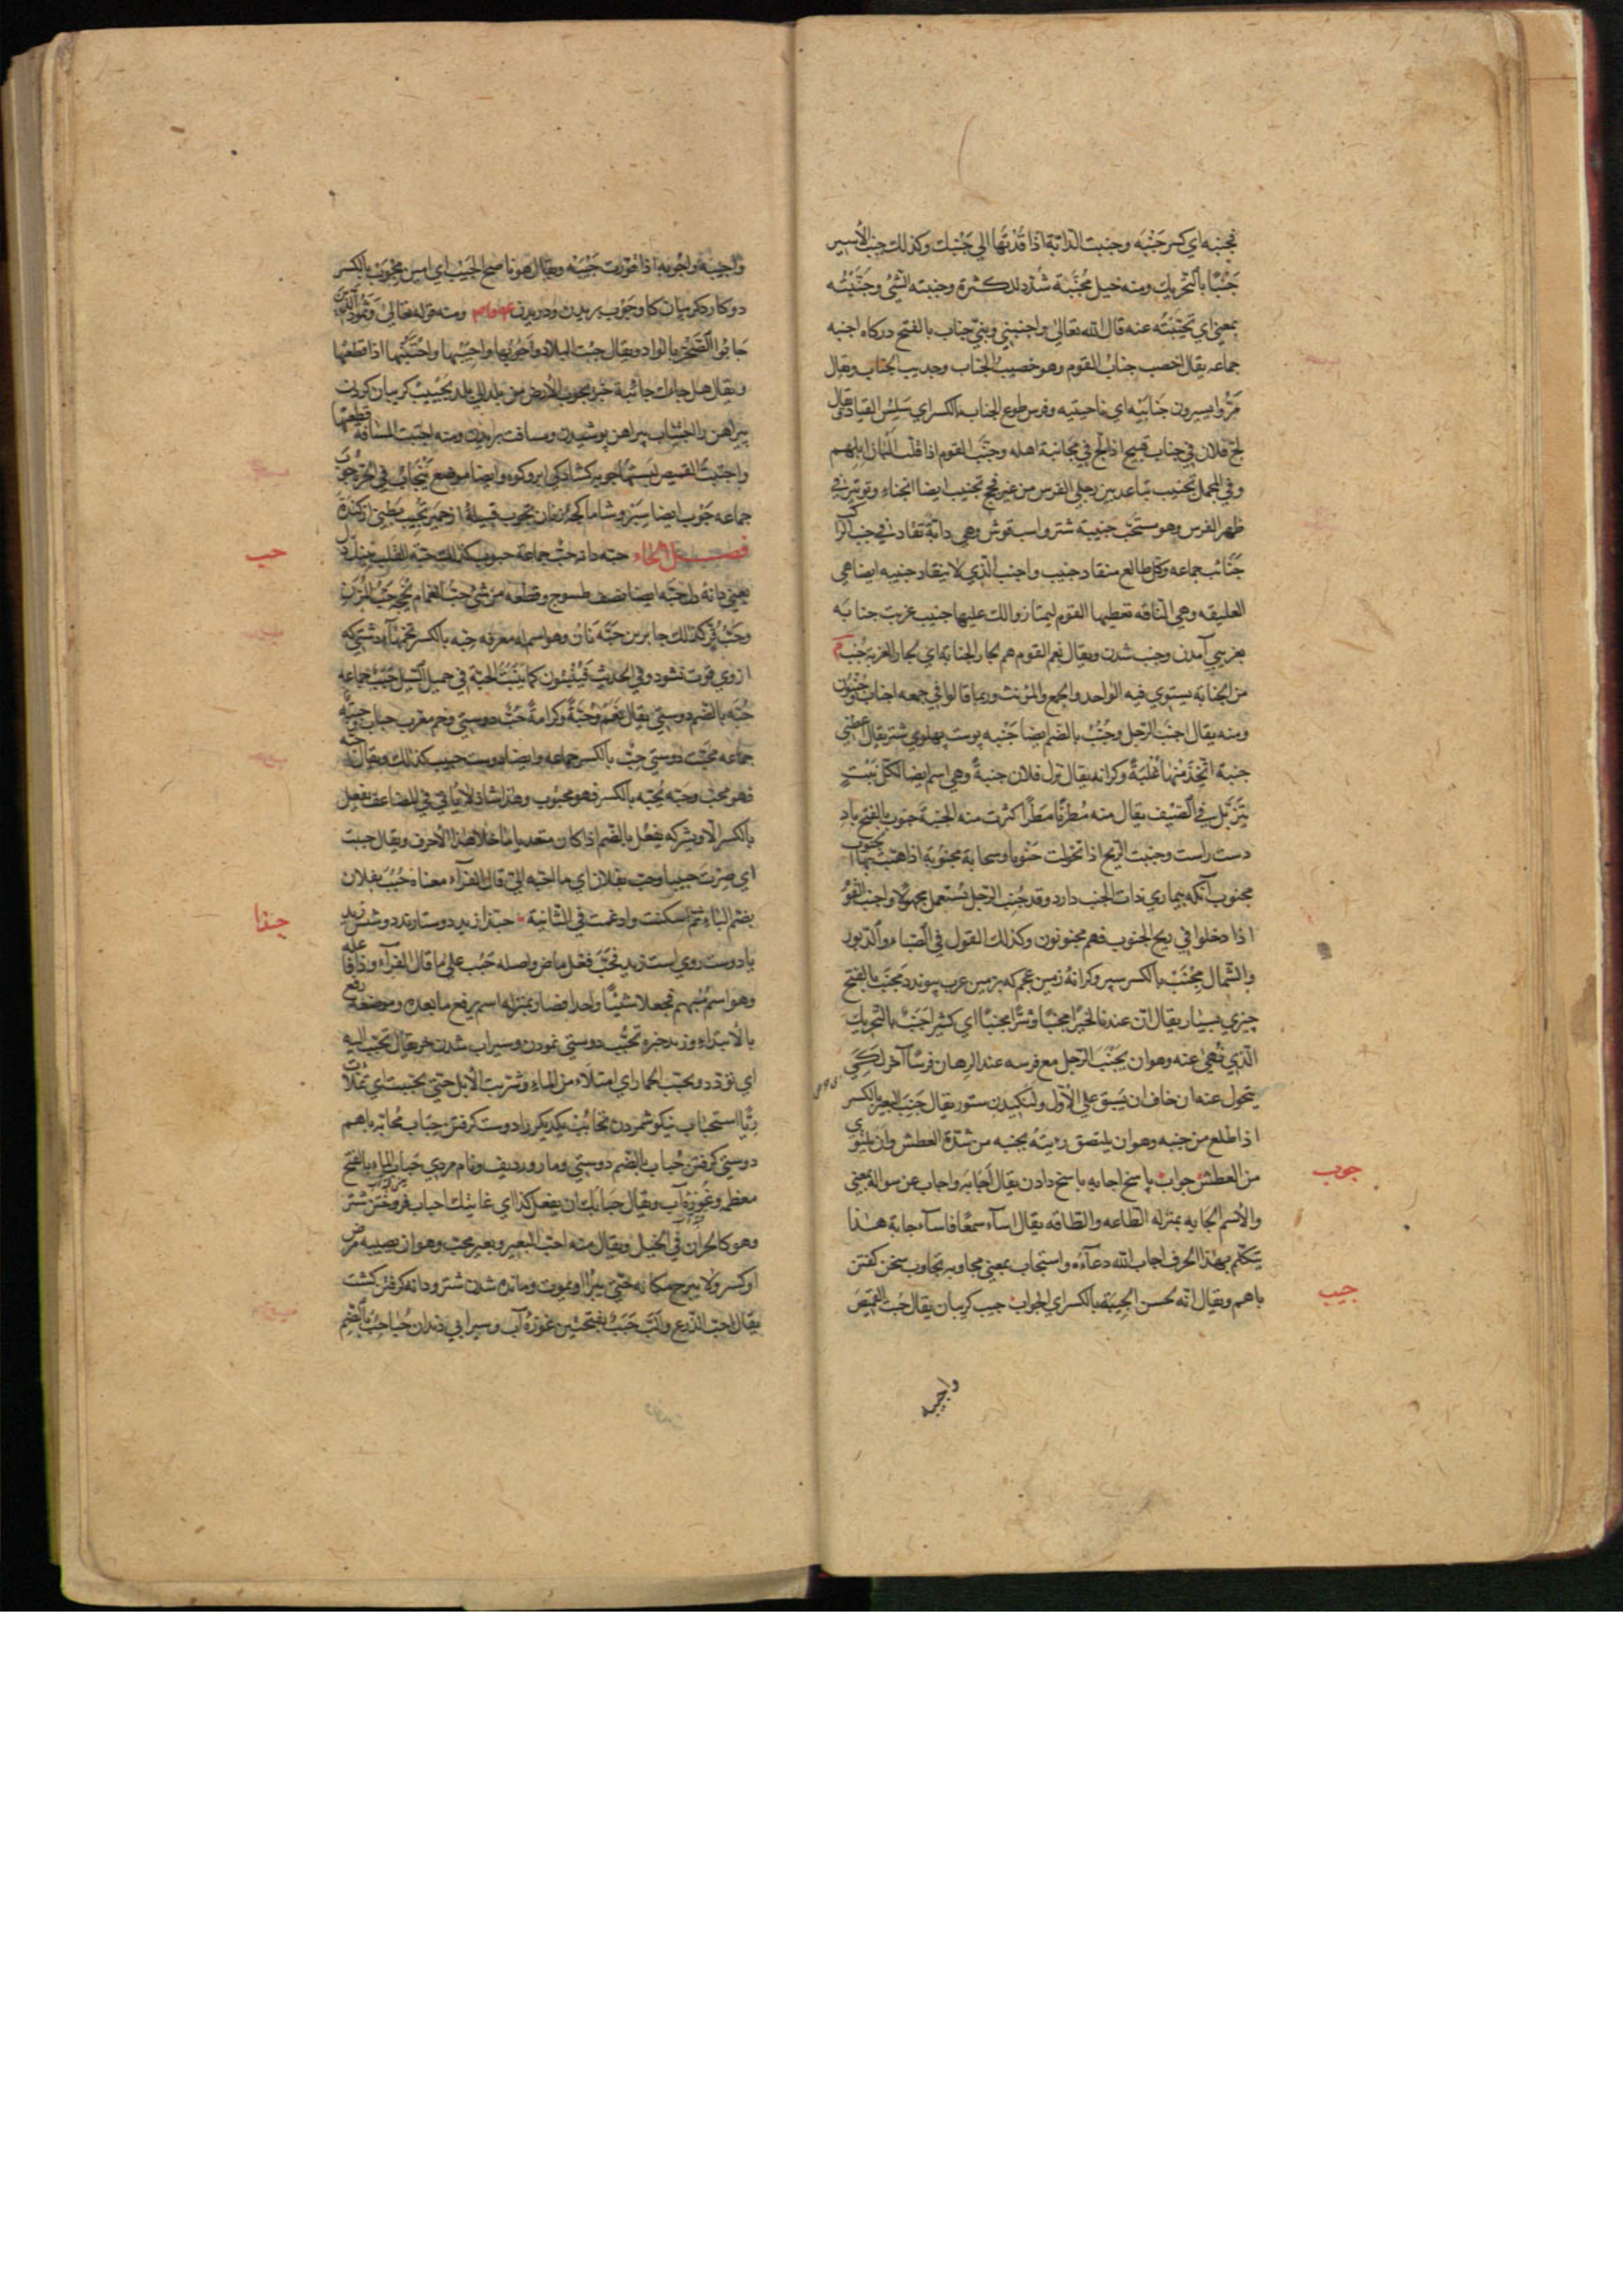 فجنبه اي كسر جَنْبَه وجنبت الدابّة اذا قُدْتَها الي جَنْبك وكذلك جنب الأسير
جَنَبًا بالتحريك ومنه خيل مُجَنَّبة شُدّد للكثرة وجنبته الشيء وجَنَّبْتُه
بمعني اي نحّيته عنه قال الله تعالي واجنبني وبنيّ جناب بالفتح دركاه اجنبه
جماعه يقال اخصب جنابُ القوم وهو خصيب الجناب وجديب الجناب ويقال
مرّوا يسيرون جَنابَيْه اي ناحيتيه وفرس طوع الجناب بالكسر اي سَلِسُ القياد يقال
لجّ فلان في جناب قبيح اذا لجّ في مجانبة اهله وجنّب القوم اذا قلّت البان ابلهم
وفي المجمل تجنيب تباعد بين رجلي الفرس من غير فحج تجنيب ايضا انحناء وتوتير في
ظهر الفرس وهو مستحبّ جنيبة شتر واسب قوش وهي دابّة تقاد في جنب الراكب
جنائب جماعه وكل طايع منقاد جنيب واجنب الذي لا ينقاد جنيبه ايضا هي
العليقه وهي الناقه تعطيها القوم ليمتاروا لك عليها جنيب غريب جنابه
بغريبي آمدن وجنب شدن ويقال نعم القوم هم لجار الجنابة اي لجار الغربة جُنُب
من الجنابه يستوي فيه الواحد والجمع والمؤنث وربما قالوا في جمعه اجناب وجُنُبون
ومنه يقال اجنب الرجل وجُنُب بالضم ايضا جَنْبه پوست پهلوي شتر يقال اعطني
جنبة اتّخذ منها عُلْبَةً وكرانه يقال نزل فلان جنبةً وهي اسم ايضا لكلّ نَبْتٍ
يتربّل في الصّيف يقال منه مُطِرْنا مَطَرًا كثرت منه الجنبة جنوب بالفتح باد
دست راست وجنبت الريح اذا تحولت جنوبا وسحابة مجنوبة اذا هبّت بها الجنوب
مجنوب آنكه بيماري ذات الجنب دارد وقد جُنِب الرجل يُستعمل مجهولا واجنب القوم
اذا دخلوا في ريح الجنوب فهم مجنوبون وكذلك القول في الصّباء والدّبور
والشّمال مِجْنَب بالكسر سپر وكرانهٔ زمين عجم كه بزمين عرب پيوندد مَجْنَب بالفتح
چيزي بسيار يقال انّ عندنا لخيرًا مجنبًا وشرًّا مجنبًا اي كثيرا جَنَب بالتحريك
الذي نُهي عنه وهو ان يَجْنُبَ الرجل مع فرسه عند الرهان فرسًا آخر لكي
يتحول عنه ان خاف ان يُسبق علي الأوّل ولنگيدن ستور يقال جَنِبَ البعير بالكسر
اذا ظلع من جنبه وهو ان يلتصق ريته بجنبه من شدّة العطش وان يلتوي
من العطش جواب پاسخ اجابه پاسخ دادن يقال أجابَه واجاب عن سواله بمعني
والأسم الجابه بمنزله الطّاعه والطّاقه يقال اساء سمعًا فاساء جابة هكذا
يتكلّم بهذا الحرف اجاب الله دعاءه واستجاب بمعني مجاوبه تجاوب سخن كفتن
باهم ويقال انه لحسن الجِيبَة بالكسر اي الجواب جيب كريبان يقال جُبْت القميصَ
جوب
جيب
واجيبه
واجيبه واجوبه اذا قوّرت جَيْبَه ويقال هو ناصح الجَيْب اي امين مِجْوَب بالكسر
دو كارد كريبان كا وجَوْب بريدن ودريدن ومنه قوله تعالي وثمود الذين
جابوا الصّخر بالواد ويقال جبت البلاد واجوبها واجيبها واجتبتها اذا قطعتها
ويقال هل جاءك جائبة خبر يجوب الأرض من بلد الي بلد تجييب كريبان كردن
پيراهن را اجتياب پيراهن پوشيدن ومسافت بريدن ومنه اجتبت المسافة قطعتها
واجتبتُ القميص لبستُها جوبه كشادكي ابر وكوه وايضا موضع ينجاب في الحرّة جُوَب
جماعه جَوْب ايضا سپر
فصل الحاء حبّه دانه حبّ جماعة حبوب كذلك حبّة القلب
يعني دانهٔ دل حبّه ايضا نصف طسوج وقطعه من شي حبّ الغمام حبّ المزن
وحبّ قُرّ كذلك جابر بن حبّة نان وهو اسم له معرفه حِبّه بالكسر تخمهآ دشتي كه
ازوي قوت نشود وفي الحديث فينبُتون كما تنبُت الحِبّة في حميل السّيل حِبَب جماعه
حُبّه بالضم دوستي يقال نَعَم وحُبّةً وكرامةً حُبّ دوستي وخم معرب حباب وحِبَبَه
جماعه محبّت دوستي حِبّ بالكسر جماعه وايضا دوست حبيب كذلك ويقال احبّه
فهو محبّ وحبّه يُحبّه بالكسر فهو محبوب وهذا شاذ لا ياتي في المضاعف يفعِل
بالكسر الّا ويشركه يفعُل بالضّم اذا كان متعديا ما خلا هذا الأحرف ويقال حببت
اي صِرْتَ حبيبا وحبّ بفلان اي ما احبّه اليّ قال الفرّاء معناه حَبُبَ بفلان
بضم الباء ثمّ اسكنت وادغمت في الثانية حبّذا زيد
يا دوست روي است زيد فحبَّ فعل ماض واصله حَبُبَ علي ما قال الفرّاء وذا فاعله
وهو اسم مُبهم فجعلا شيئًا واحدا فصار بمنزله اسم يرفع ما بعده وموضعه رفع
بالأبتداء وزيد خبره تحبُّب دوستي نمودن وسيراب شدن خر يقال تحبّب اليه
اي تودّد وتحبّب الحمار اي امتلاء من الماء وشربت الأبل حتي تحبّبت اي تملّأت
رِيًّا استحباب نيكو شمردن تحابُب يكديكر را دوست كرفتن حِباب مُحابّه باهم
دوستي كرفتن حُباب بالضّم دوستي ومار ورديف ونام مردي حَباب الماء بالفتح
معظمه وغوزهٔ آب ويقال حَبابُك ان يفعل كذا اي غايتك احباب فروخفتن شتر
وهو كالحران في الخيل ويقال منه احبّ البعير وبعير محبّ وهو ان يصيبه مرض
او كسر ولا يبرح مكانه حتّي يبرأ او يموت ومانده شدن شتر ودانه كرفتن كشت
يقال احبّ الزّرع والبّ حَبَب بفتحتين غوزهٔ آب وسيرابي دندان حُباحِب بالضّم
حب
حبذا